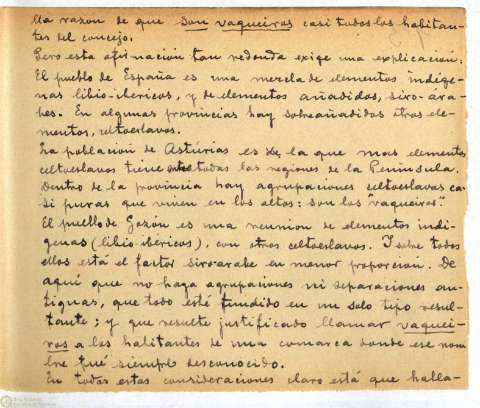 lla razon de que son vaqueiros casi todos los habitan-
tes del concejo.
Pero esta afirmación tan redonda exige una explicación:
El pueblo de España es una mezcla de elementos indíge-
nas libio-ibericos, y de elementos añadidos, siro-ara-
bes. En algunas provincias hay sobreañadidos otros ele-
mentos, celtoeslavos.
La poblacion de Astúrias es la que mas elementos
celtoeslavos tiene de todas las regiones de la Península.
Dentro de la provincia hay agrupaciones celtoeslavas ca-
si puras que viven en los altos: son los "vaqueiros".
El pueblo de Gozón es una reunion de elementos indi-
genas (libio-ibericos), con otros celtoeslavos. Y sobre todos
ellos está el factor siro-arabe en menor proporción. De
aquí que no haya agrupaciones ni separaciones an-
tiguas, que todo esté fundido en un solo tipo resul-
tante; y que resulte justificado llamar vaquei-
ros a los habitantes de una comarca donde ese nom-
bre fué siempre desconocido.
En todas estas consideraciones claro está que habla-